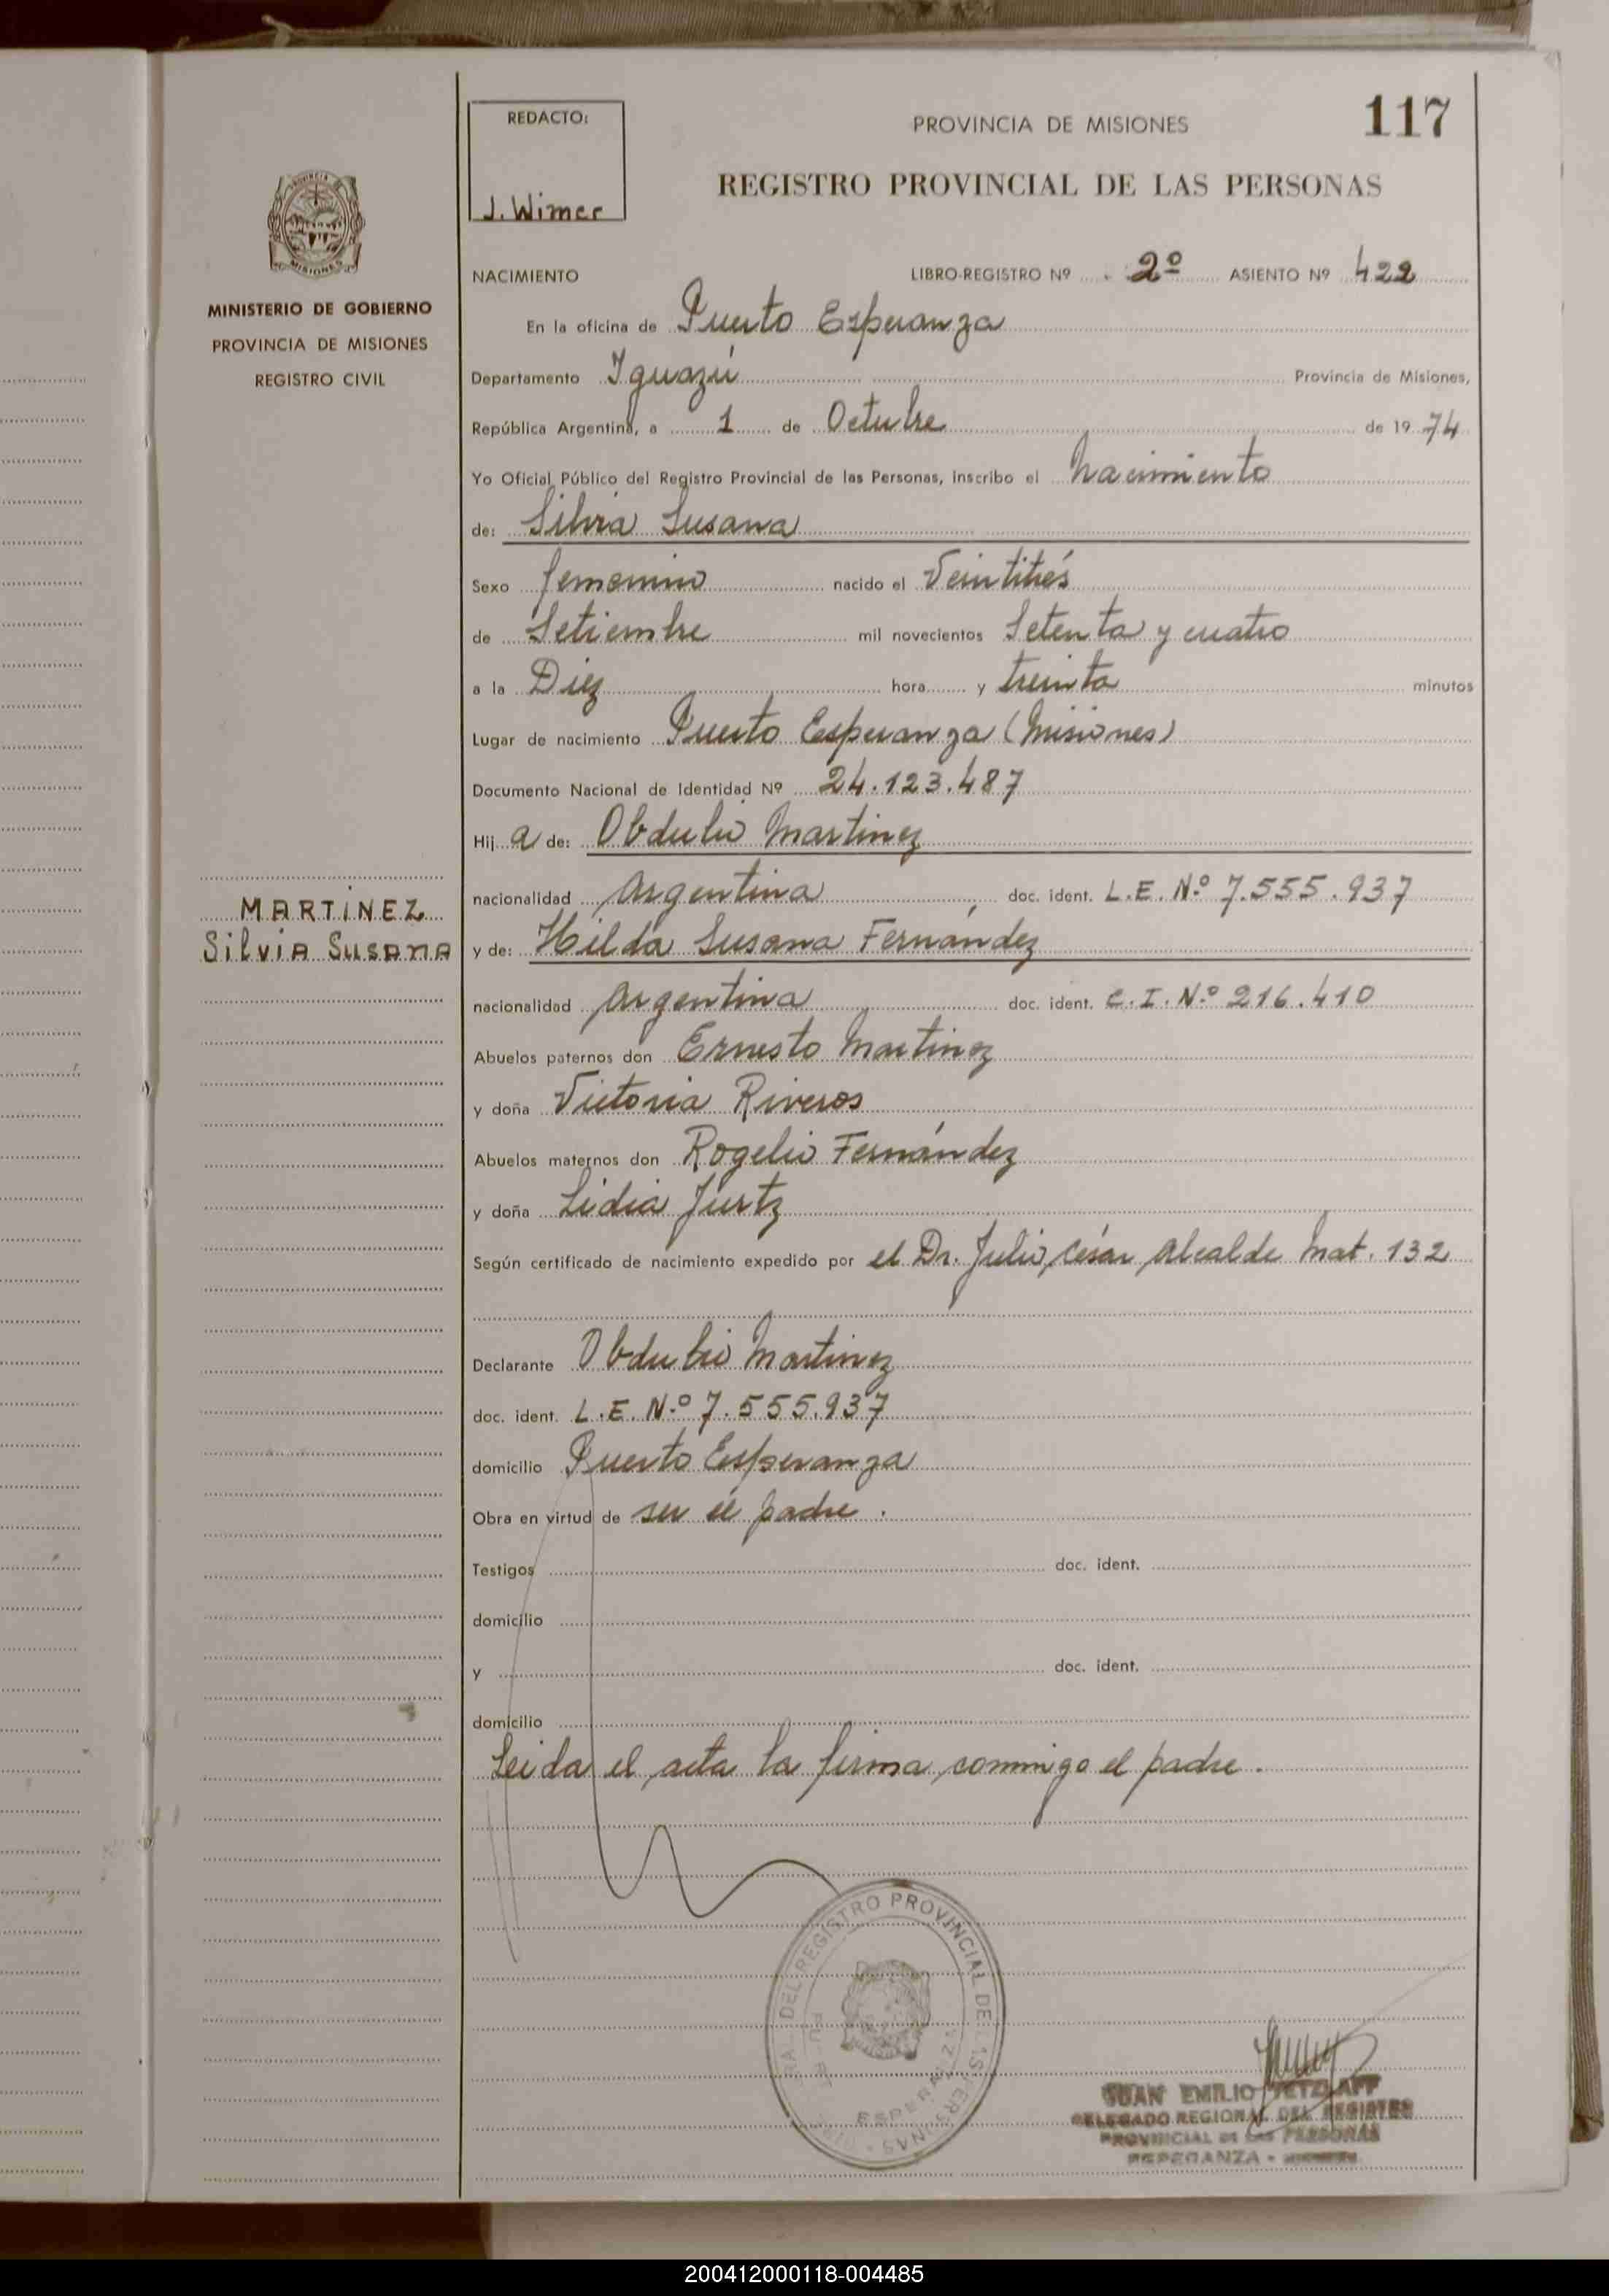 REDACTO:
J. Wimer
PROVINCIA DE MISIONES
117
REGISTRO PROVINCIAL DE LAS PERSONAS
MISIONES
MINISTERIO DE GOBIERNO
PROVINCIA DE MISIONES
REGISTRO CIVIL
NACIMIENTO LIBRO-REGISTRO Nº 2º ASIENTO Nº 422
En la oficina de Puerto Esperanza
Departamento Iguazú Provincia de Misiones,
República Argentina, a 1 de Octubre de 1974
Yo Oficial Público del Registro Provincial de las Personas, inscribo el nacimiento
de: Silvia Susana
Sexo femenino nacido el Veintitrés
de Setiembre mil novecientos Setenta y cuatro
a la Diez hora y treinta minutos
Lugar de nacimiento Puerto Esperanza (Misiones)
Documento Nacional de Identidad Nº 24.123.487
Hij a de: Obdulio Martinez
MARTÍNEZ
Silvia Susana
nacionalidad Argentina doc. ident. L.E. N.º 7.555.937
y de: Hilda Susana Fernández
nacionalidad Argentina doc. ident. C.I. N.º 216.410
Abuelos paternos don Ernesto Martinez
y doña Victoria Riveros
Abuelos maternos don Rogelio Fernández
y doña Lidia Jurtz
Según certificado de nacimiento expedido por el Dr. Julio César Alcalde Mat. 132
Declarante Obdulio Martinez
doc. ident. L.E. N.º 7.555.937
domicilio Puerto Esperanza
Obra en virtud de ser el padre.
Testigos doc. ident.
domicilio
y doc. ident.
domicilio
Leida el acta la firma conmigo el padre.
DEL REGISTRO PROVINCIAL DE LAS PERSONAS
ESPERANZA
JUAN EMILIO JETZLAFF
DELEGADO REGIONAL DEL REGISTRO
PROVINCIAL DE LAS PERSONAS
ESPERANZA -
200412000118-004485